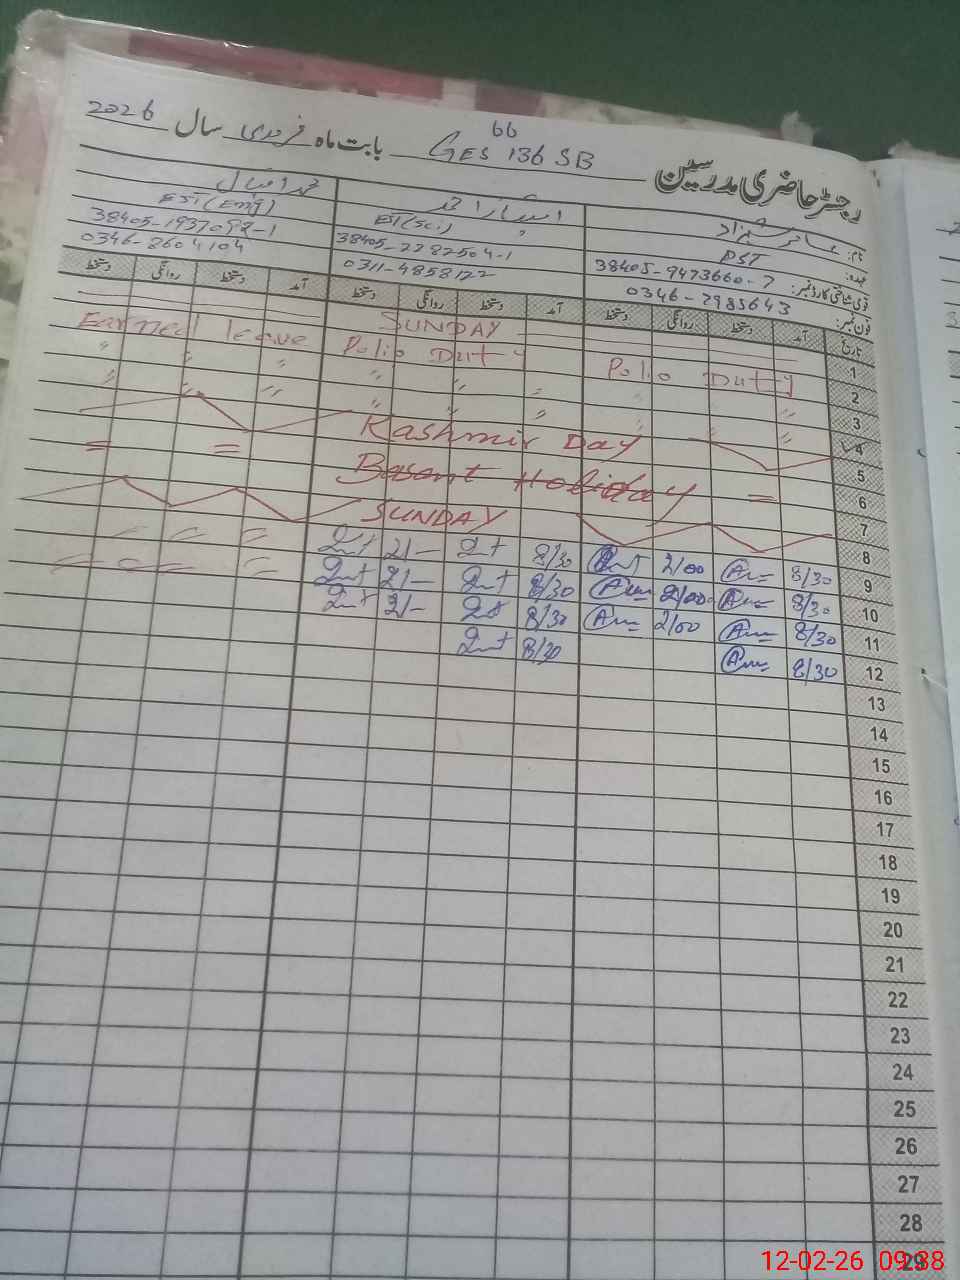 66
رجسٹر حاضری مدرسین GES 136 SB بابت ماہ فروری سال 2026
نام: عامر شہزاد
عہدہ: PST
قومی شناختی کارڈ نمبر: 38405-9473660-7
فون نمبر: 0346-7985643
امتیاز احمد
EST(Sci)
38405-2282504-1
0311-4858122
محمد اقبال
EST(Eng)
38405-1937092-1
0346-8604104
تاریخ آمد دستخط روانگی دستخط آمد دستخط روانگی دستخط آمد دستخط روانگی دستخط
1 SUNDAY
2 Polio Duty Polio Duty Earned leave
3 " " " " "
4 " " " " "
5 Kashmir Day
6 Basant Holiday = = =
7
8 SUNDAY
9 8/30 2/00 8/30 2/-
10 8/30 2/00 8/30 2/-
11 8/30 2/00 8/30 2/-
12 8/30 8/30
13
14
15
16
17
18
19
20
21
22
23
24
25
26
27
28
29
12-02-26 09:38